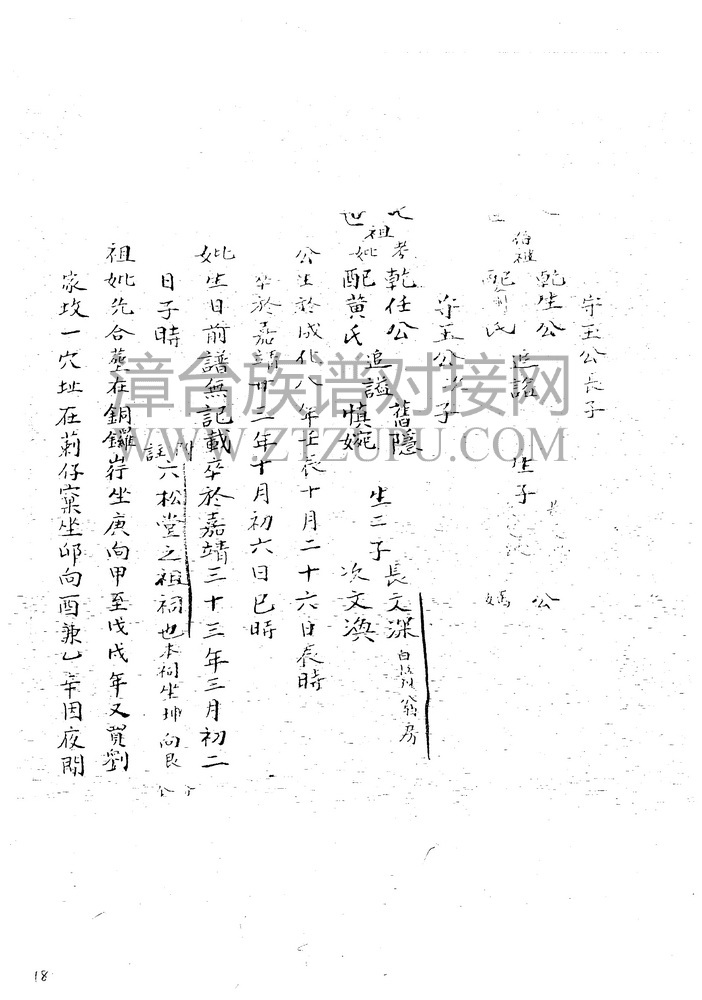 守玉公長子
伯祖 乾生公 追謚 生子 公
配 氏 媽
守玉公次子
世祖 考 乾任公 追謚 舊隱 生二子 長文深 白 翁房
妣 配黃氏 慎婉 次文渙
公生於成化八年壬辰十月二十六日辰時
卒於嘉靖廿二年十月初六日巳時
妣生日前譜無記載卒於嘉靖三十三年三月初二
日子時 附註 六松堂之祖祠也本祠坐坤向艮
祖妣先合葬在銅鑼 坐庚向甲至戊戌年又買劉
家坟一穴址在莿仔寮坐卯向酉兼乙辛因夜間
漳台族谱对接网
WWW.ZTZUPU.COM
18